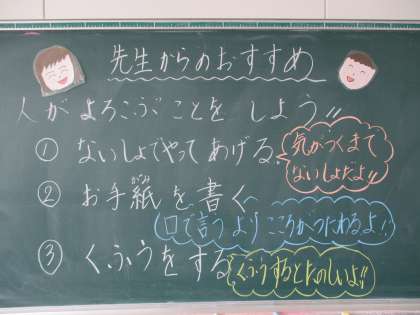 先生からのおすすめ
人がよろこぶことをしよう!!
① ないしょでやってあげる。
気がつくまで
ないしょだよ!!
② お手紙を書く
がみ
口で言うより こころがつたわるよ!
③ くふうをする
くふうするとたのしいよ!!